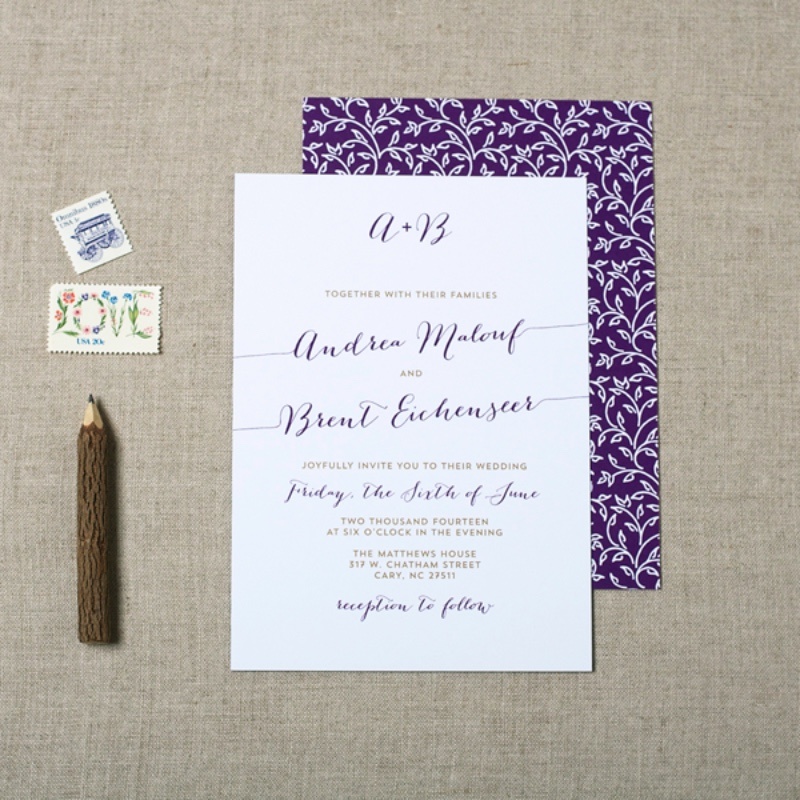 A+B
TOGETHER WITH THEIR FAMILIES
Andrea Malouf
AND
Brent Eichenseer
JOYFULLY INVITE YOU TO THEIR WEDDING
Friday, the Sixth of June
TWO THOUSAND FOURTEEN
AT SIX O'CLOCK IN THE EVENING
THE MATTHEWS HOUSE
317 W. CHATHAM STREET
CARY, NC 27511
reception to follow
Omnibus 1880s
USA 1c
LOVE
USA 20c